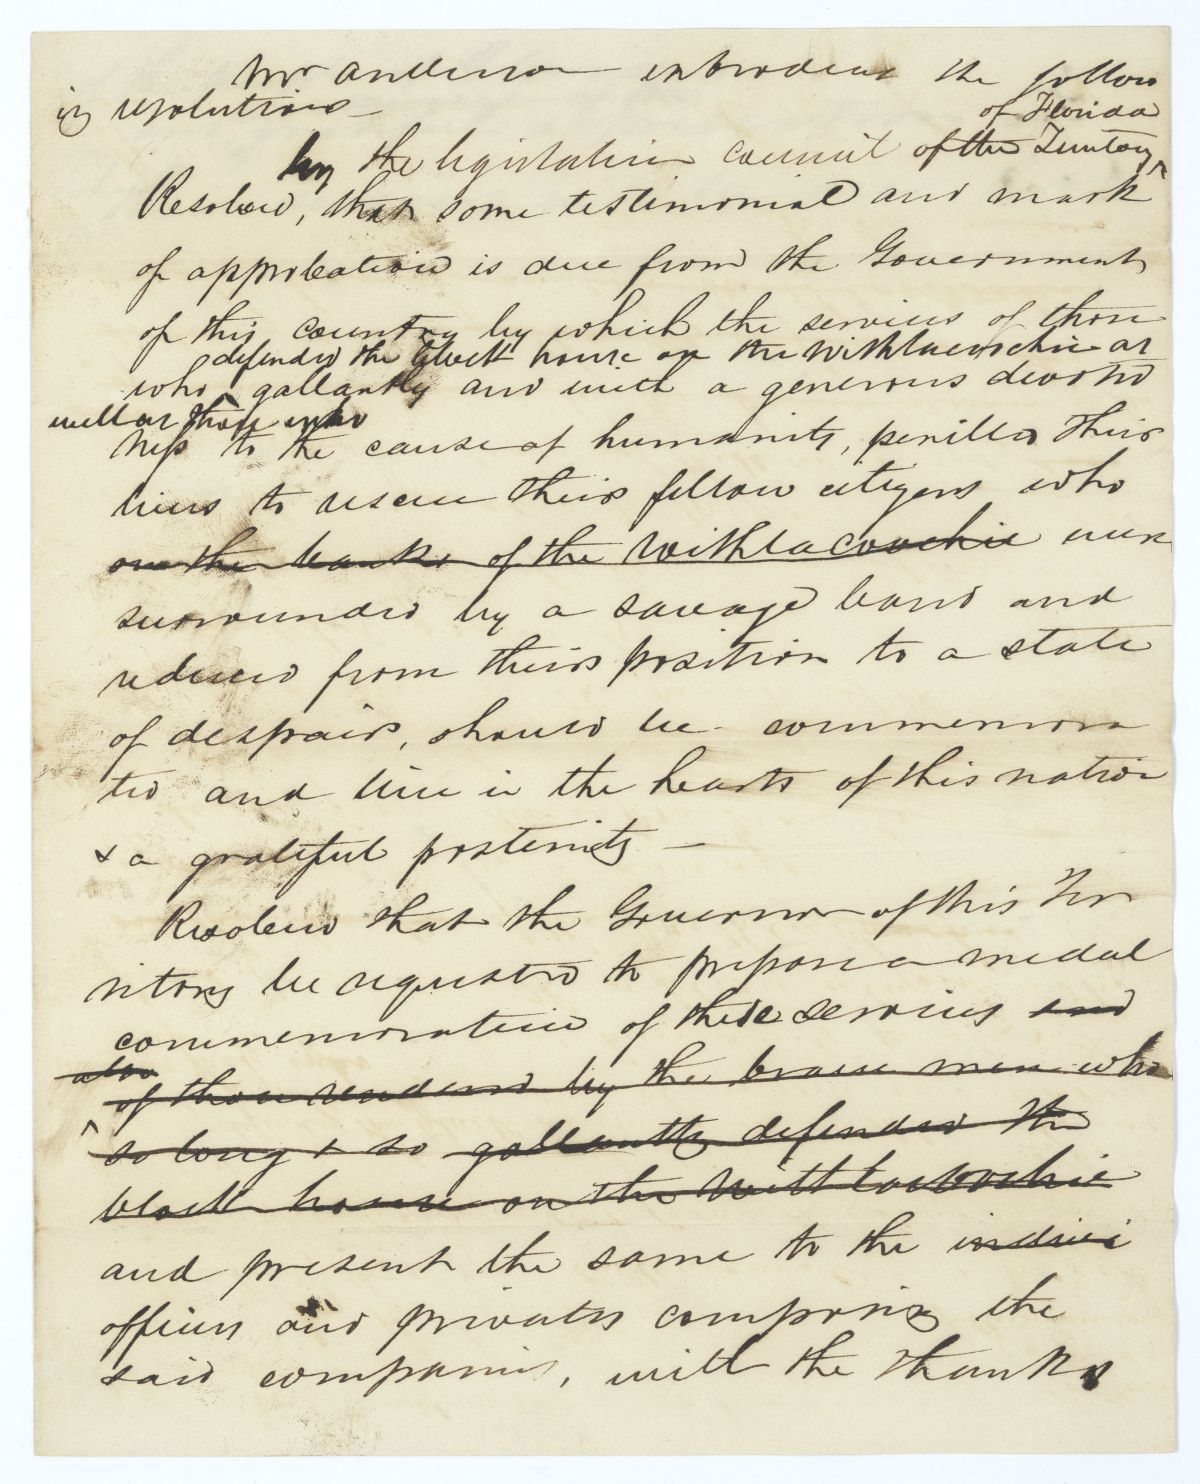 Mr Anderson introduces the follow
ing resolutions
of Florida
by the legislative council of the Territory
Resolved, that some testimonial and mark
of approbation is due from the Government
of this country by which the services of those
defended the block house on the Withlacoochie as
who gallantly and with a generous devoted
well as those who
ness to the cause of humanity, perilled their
lives to rescue their fellow citizens who
on the banks of the Withlacoochie were
surrounded by a savage band and
reduced from their position to a state
of despair, should be commemora
ted and live in the hearts of this nation
& a grateful posterity —
Resolved that the Governor of this Ter
ritory be requested to prepare a medal
commemorative of these services and
also
of those rendered by the brave men who
so long & so gallantly defended the
block house on the Withlacoochie
and present the same to the indivi
officers and privates composing the
said companies, with the thanks